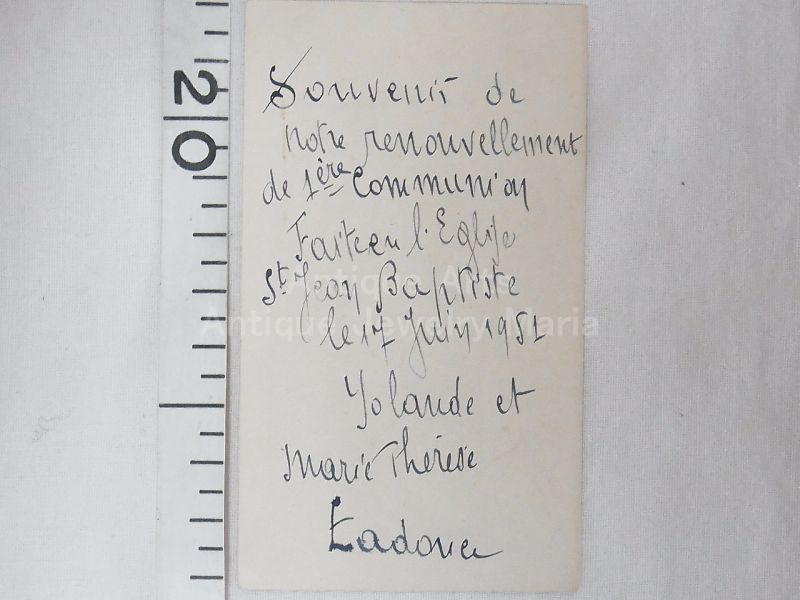 20
Souvenir de
notre renouvellement
de 1ère Communion
Faite en l'Eglise
St Jean Baptiste
le 17 Juin 1951
Yolande et
Marie Thérèse
Antique Arts
Antique Jewelry Maria